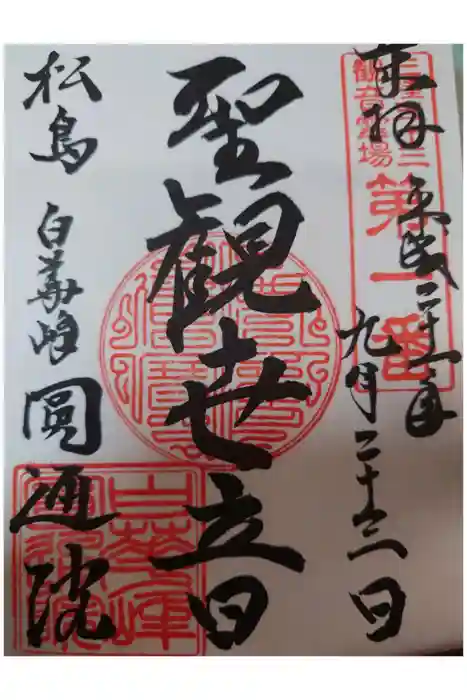 三陸三十三
観音霊場
第一番
奉拝
平成二十一年
九月二十三日
聖観世音
松島 白華峰 圓通院
白華峰
圓通院